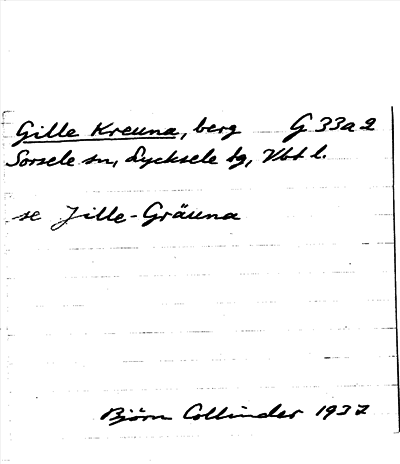 Gille Kreuna, berg G 33a2
Sorsele sn, Lycksele tg, Vbt l.
se Jille-Gräuna
Björn Collinder 1937